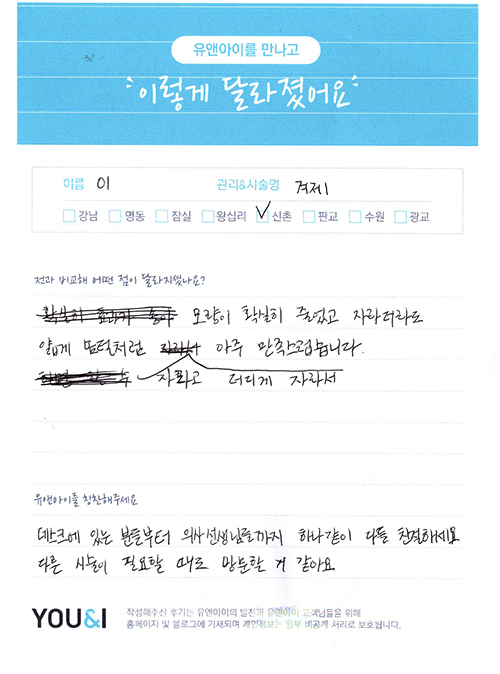 유앤아이를 만나고
이렇게 달라졌어요
이름 이 관리&시술명 겨제1
강남 명동 잠실 왕십리 신촌 판교 수원 광교
전과 비교해 어떤 점이 달라지셨나요?
모량이 확실히 줄었고 자라더라도
얇게 솜털처럼 아주 만족스럽습니다.
자라고 더디게 자라서
유앤아이를 칭찬해주세요
데스크에 있는 분들부터 의사선생님들까지 하나같이 다들 친절하세요
다른 시술이 필요할 때도 방문할 거 같아요.
YOU&I
작성해주신 후기는 유앤아이의 발전과 유앤아이 고객님들을 위해
홈페이지 및 블로그에 기재되며 개인정보는 일부 비공개 처리로 보호됩니다.